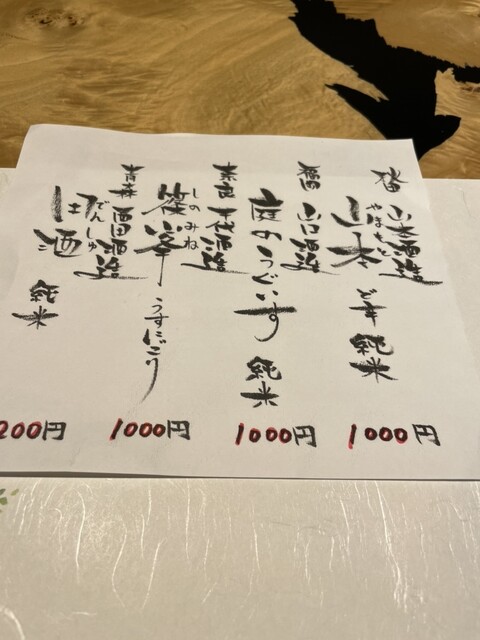 秋田 山本酒造
山本
やまもと
ど辛 純米
1000円
福岡 山口酒造
庭のうぐいす
純米
1000円
奈良 千代酒造
篠峯
しの みね
うすにごり
1000円
青森 西田酒造
田酒
でんしゅ
純米
200円